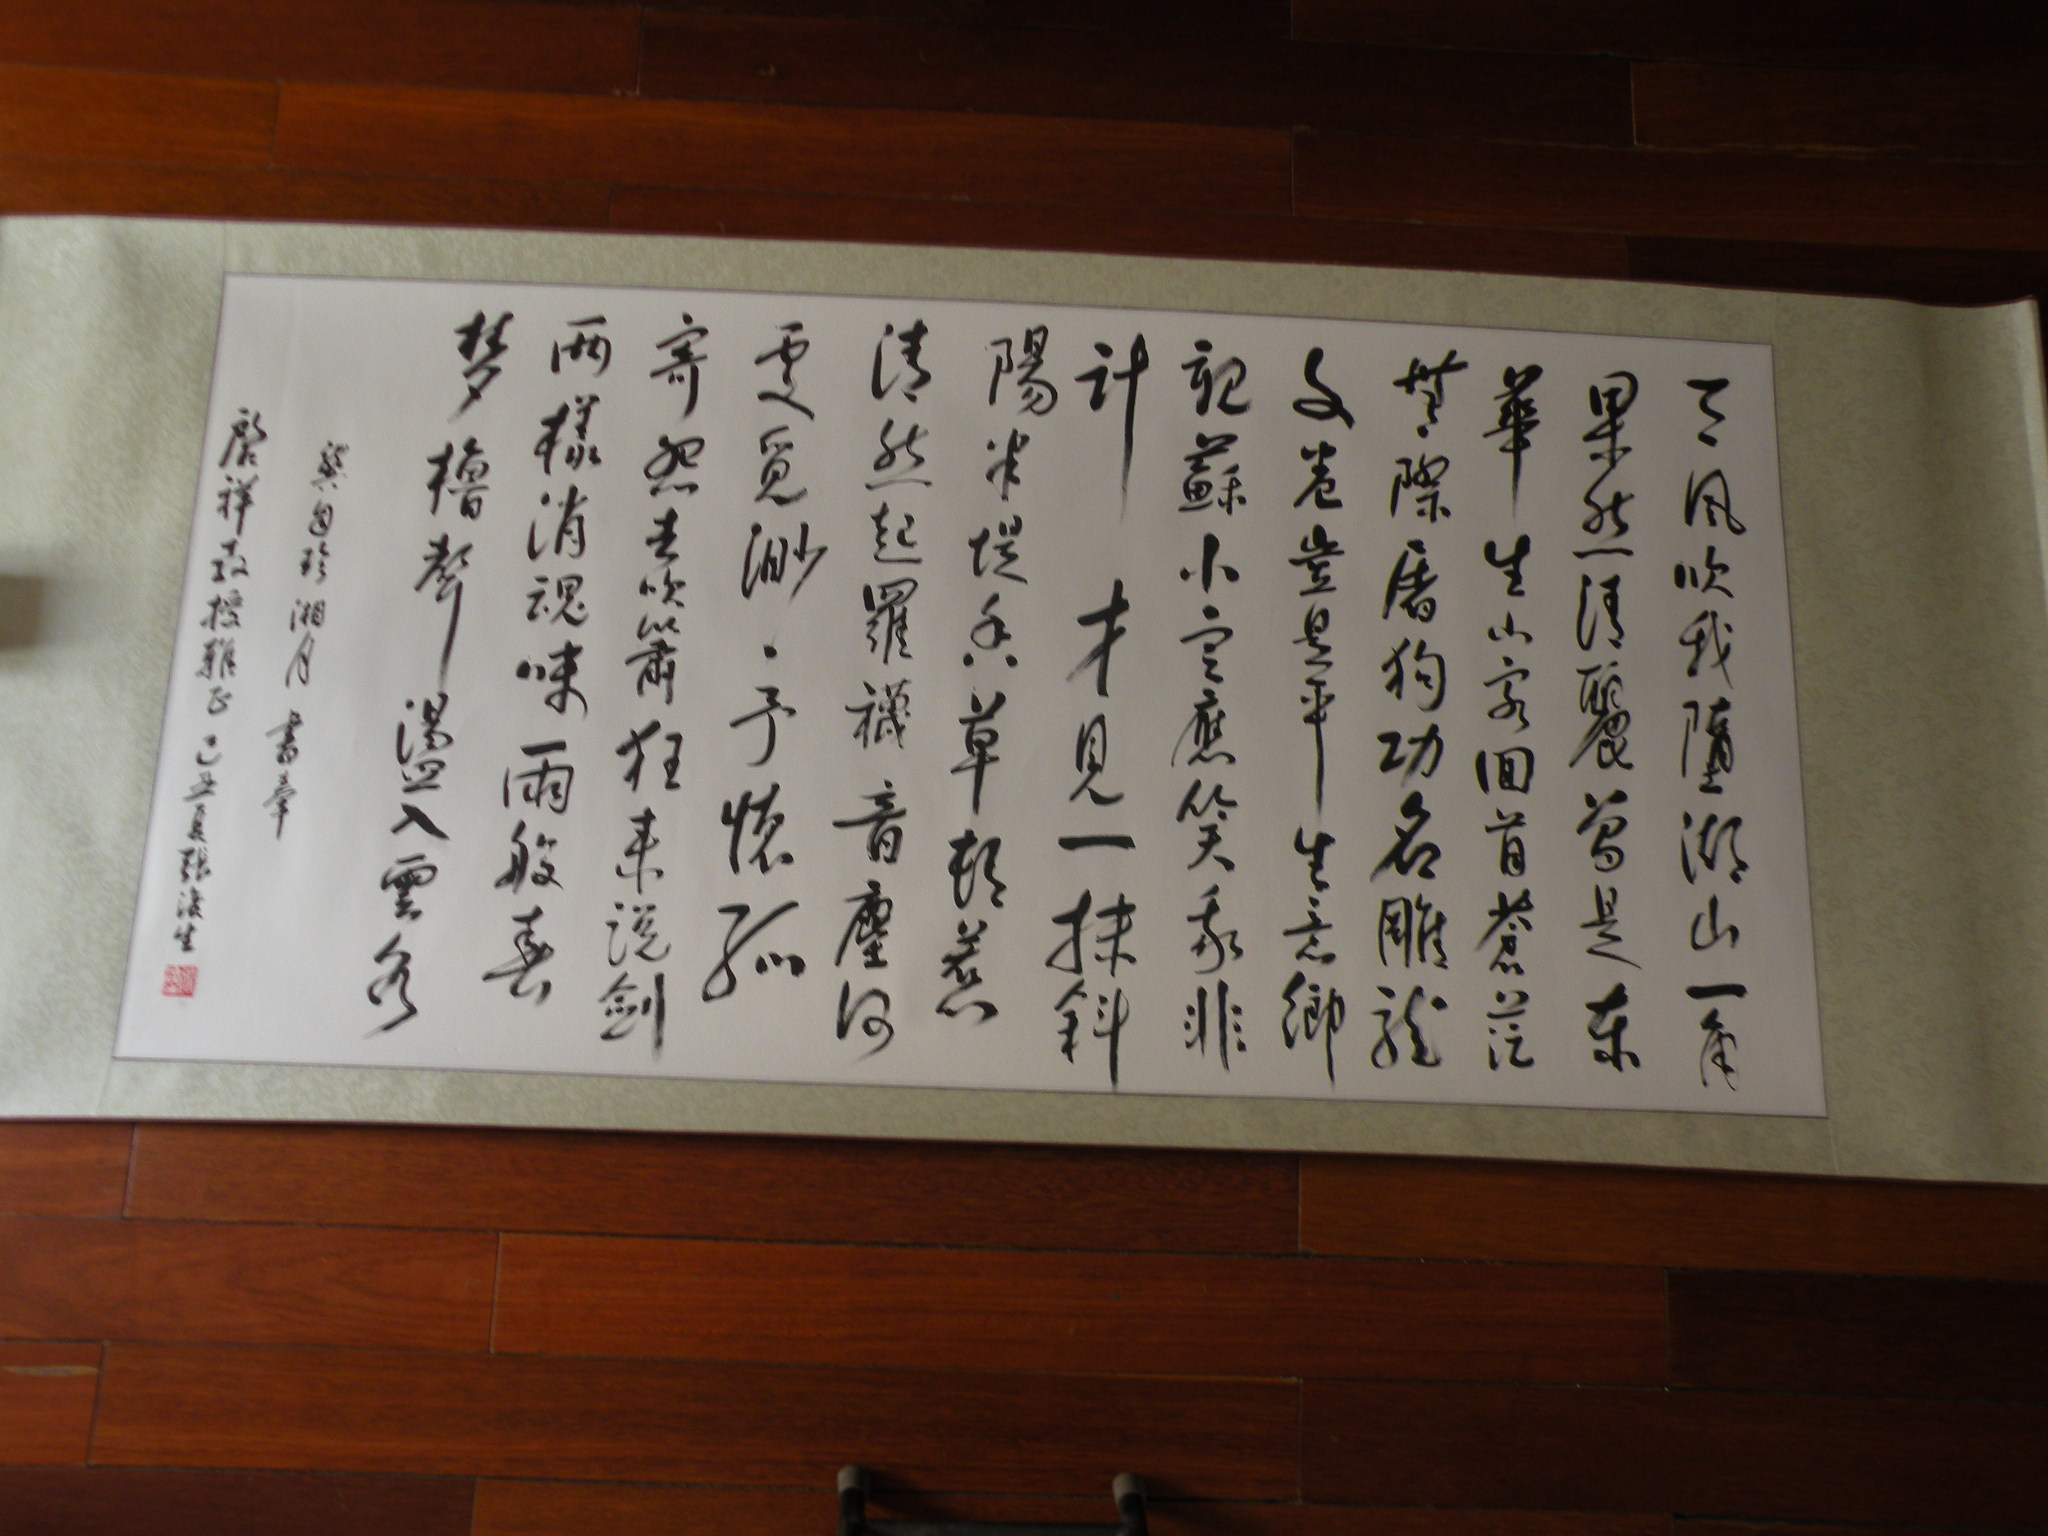 天風吹我墮湖山一角
果然清麗曾是東
華生小客回首蒼茫
無際屠狗功名雕龍
文卷豈是平生意鄉
親蘇小定應笑我非
計才見一抹斜
陽半堤香草頓惹
清愁起羅襪音塵何
處覓渺渺予懷孤
寄怨去吹簫狂來說劍
兩樣消魂味兩般春
夢櫓聲盪入雲水
龔自珍湘月 書奉
啟祥教授雅正 己丑夏張生